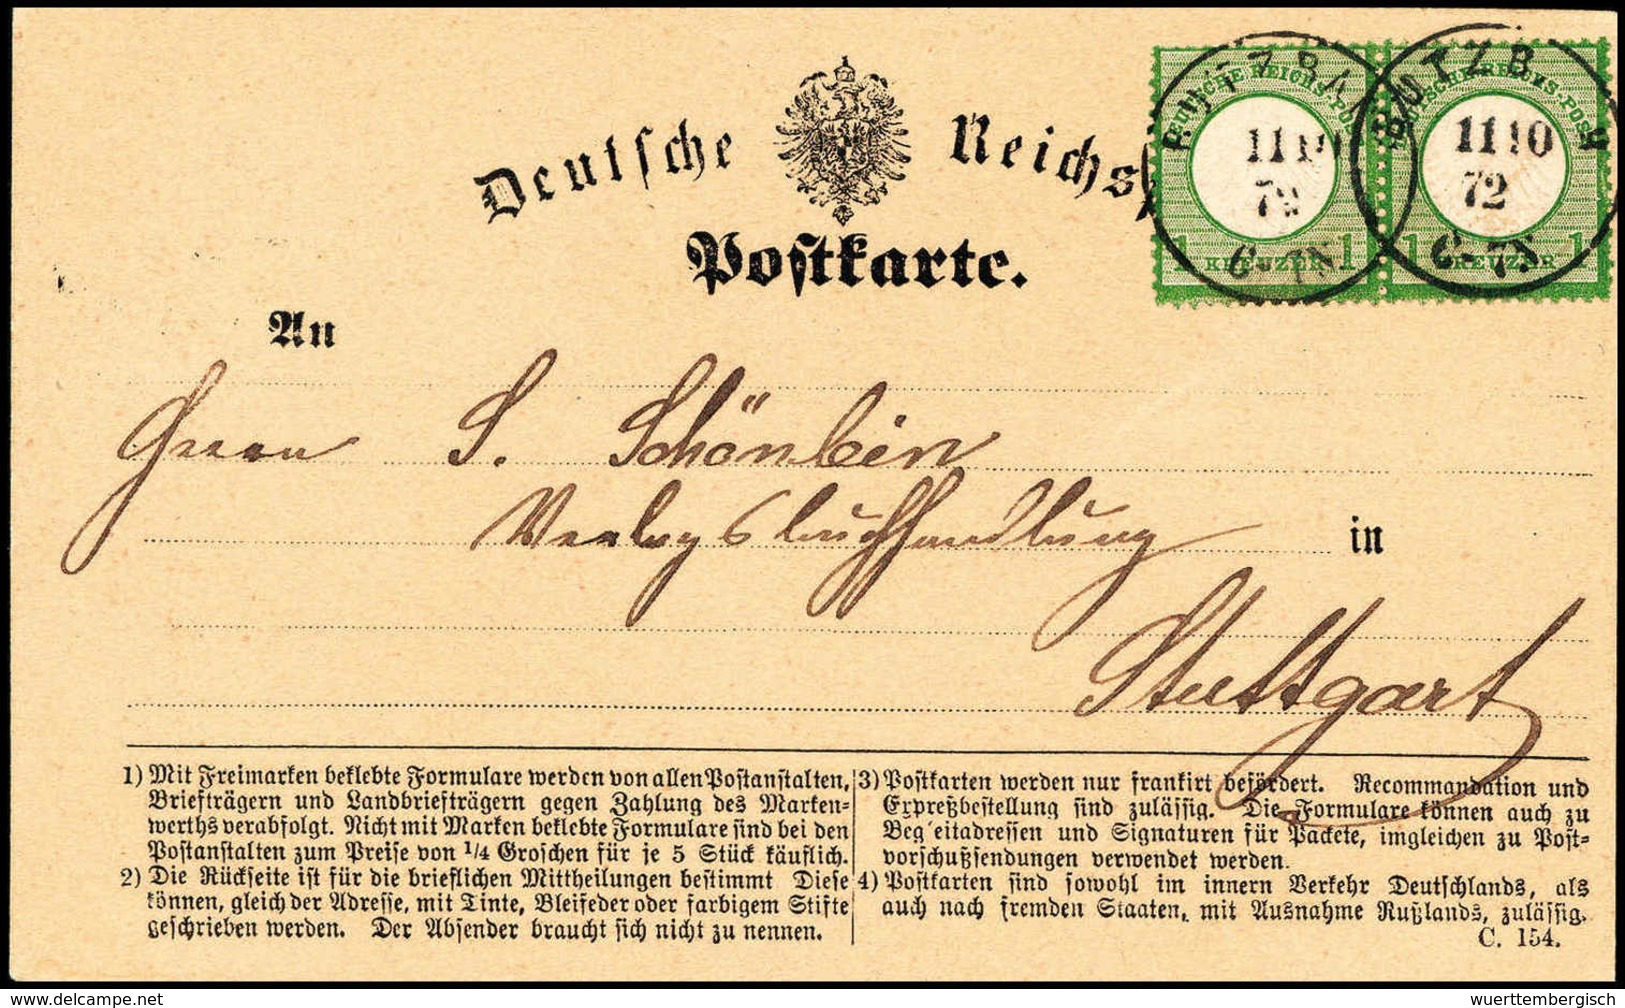 Deutsche Reichs
Postkarte.
DEUTSCHE REICHS-POST
1 KREUZER 1
BUTZBA
11 10
72
6-7N
DEUTSCHE REICHS-POST
1 KREUZER 1
BUTZB
11 10
72
6-7N
An
Herrn S. Schönlein
Verlagsbuchhandlung in
Stuttgart
1) Mit Freimarken beklebte Formulare werden von allen Postanstalten,
Briefträgern und Landbriefträgern gegen Zahlung des Marken-
werths verabfolgt. Nicht mit Marken beklebte Formulare sind bei den
Postanstalten zum Preise von 1/4 Groschen für je 5 Stück käuflich.
2) Die Rückseite ist für die brieflichen Mittheilungen bestimmt Diese
können, gleich der Adresse, mit Tinte, Bleifeder oder farbigem Stifte
geschrieben werden. Der Absender braucht sich nicht zu nennen.
3) Postkarten werden nur frankirt befördert. Recommandation und
Expreßbestellung sind zulässig. Die Formulare können auch zu
Beg'eitadressen und Signaturen für Packete, imgleichen zu Post-
vorschußsendungen verwendet werden.
4) Postkarten sind sowohl im innern Verkehr Deutschlands, als
auch nach fremden Staaten, mit Ausnahme Rußlands, zulässig.
C. 154.
© www.delcampe.net
wuerttembergisch